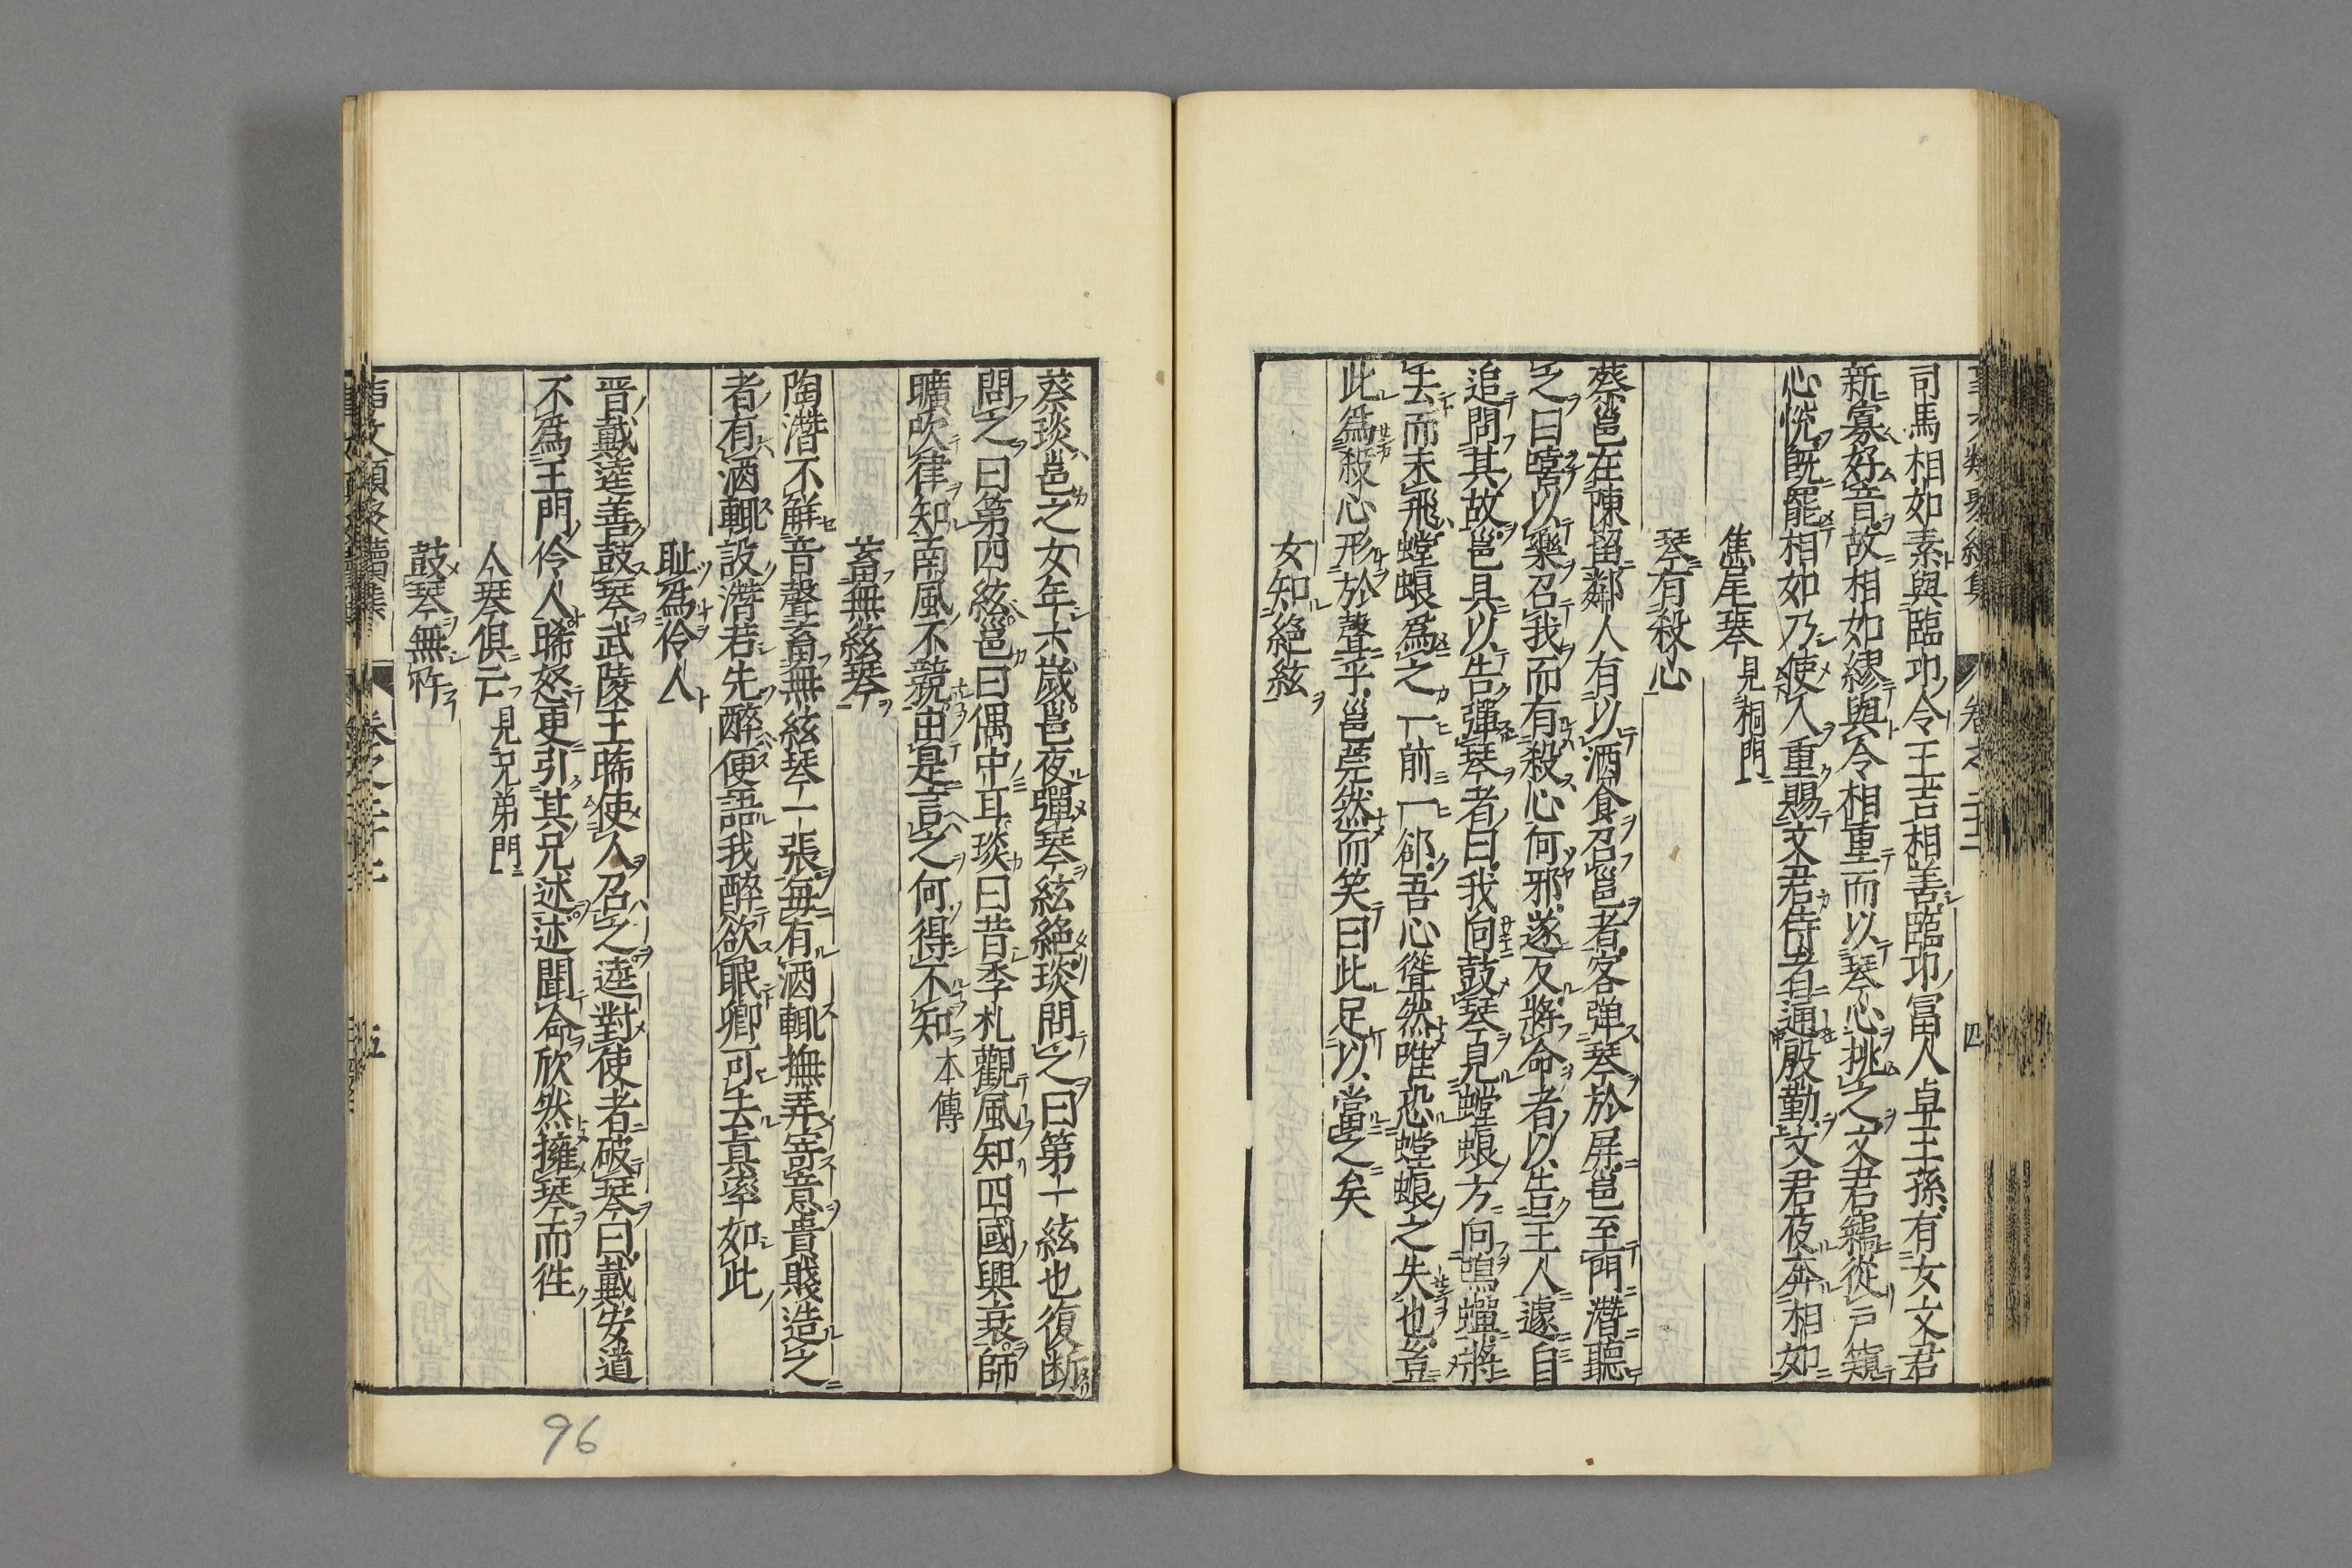 司馬相如素與臨卭令王吉相善臨卭富人卓王孫有女文君
新寡好音故相如繆與令相重而以琴心挑之文君竊從戸窺
心悦既罷相如乃使人重賜文君侍者通殷勤文君夜奔相如
焦尾琴 見桐門
琴有殺心
蔡邕在陳留鄰人有以酒食召邕者客弾琴於屏邕至門潛聽
之曰嘻以樂召我而有殺心何邪遂反將命者以告主人遽自
追問其故邕具以告彈琴者曰我向鼓琴見螳蜋方向鳴蟬將
去而未飛螳蜋為之一前一郤吾心聳然唯恐螳蜋之失也豈
此為殺心形於聲乎邕莞然而笑曰此足以當之矣
女知絶絃
蔡琰邕之女年六歳邕夜彈琴絃絶琰問之曰第一絃也復断
問之曰第四絃邕曰偶中耳琰曰昔季札觀風知四國興衰師
曠吹律知南風不競由是言之何得不知 本傳
蓄無絃琴
陶潛不解音聲蓄無絃琴一張毎有酒輒撫弄寄意貴賤造之
者有酒輒設潛若先醉便語我醉欲眠卿可去真率如此
耻為伶人
晋戴逵善鼓琴武陵王晞使人召之逵對使者破琴曰戴安道
不為王門伶人晞怒更引其兄述述聞命欣然擁琴而徃
人琴俱亡 見兄弟門
鼓琴無忤
五
96